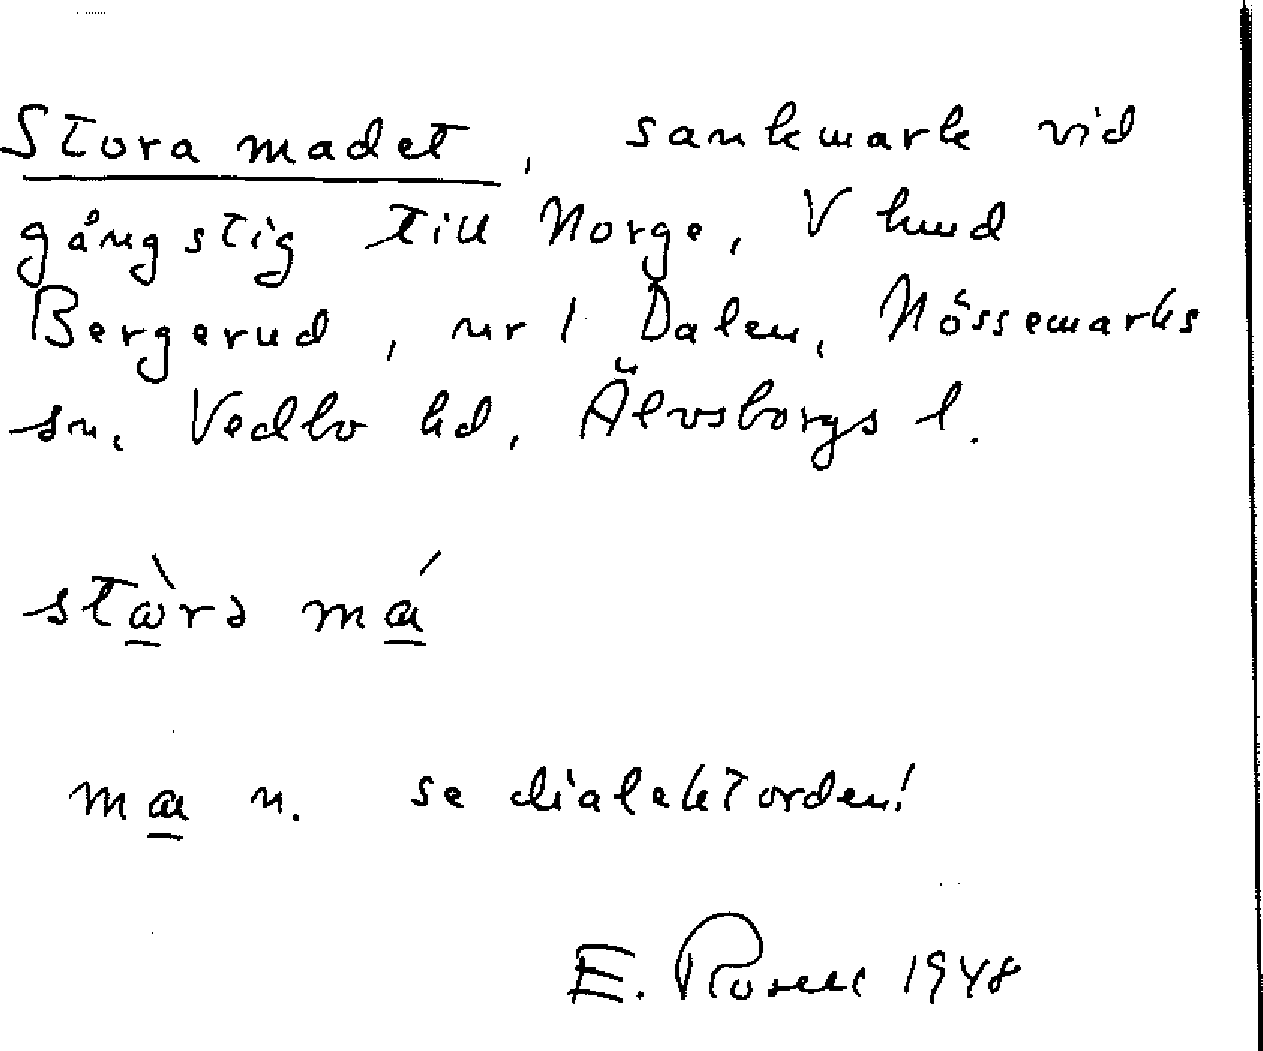 Stora madet, sankmark vid
gångstig till Norge, V hund
Bergerud, nr 1 Dalen, Nössemarks
sn. Vedbo hd, Älvsborgs l.
stὼ̲rə mɑ̲́
mɑ̲ n. se dialektorden!
E. Rosell 1948